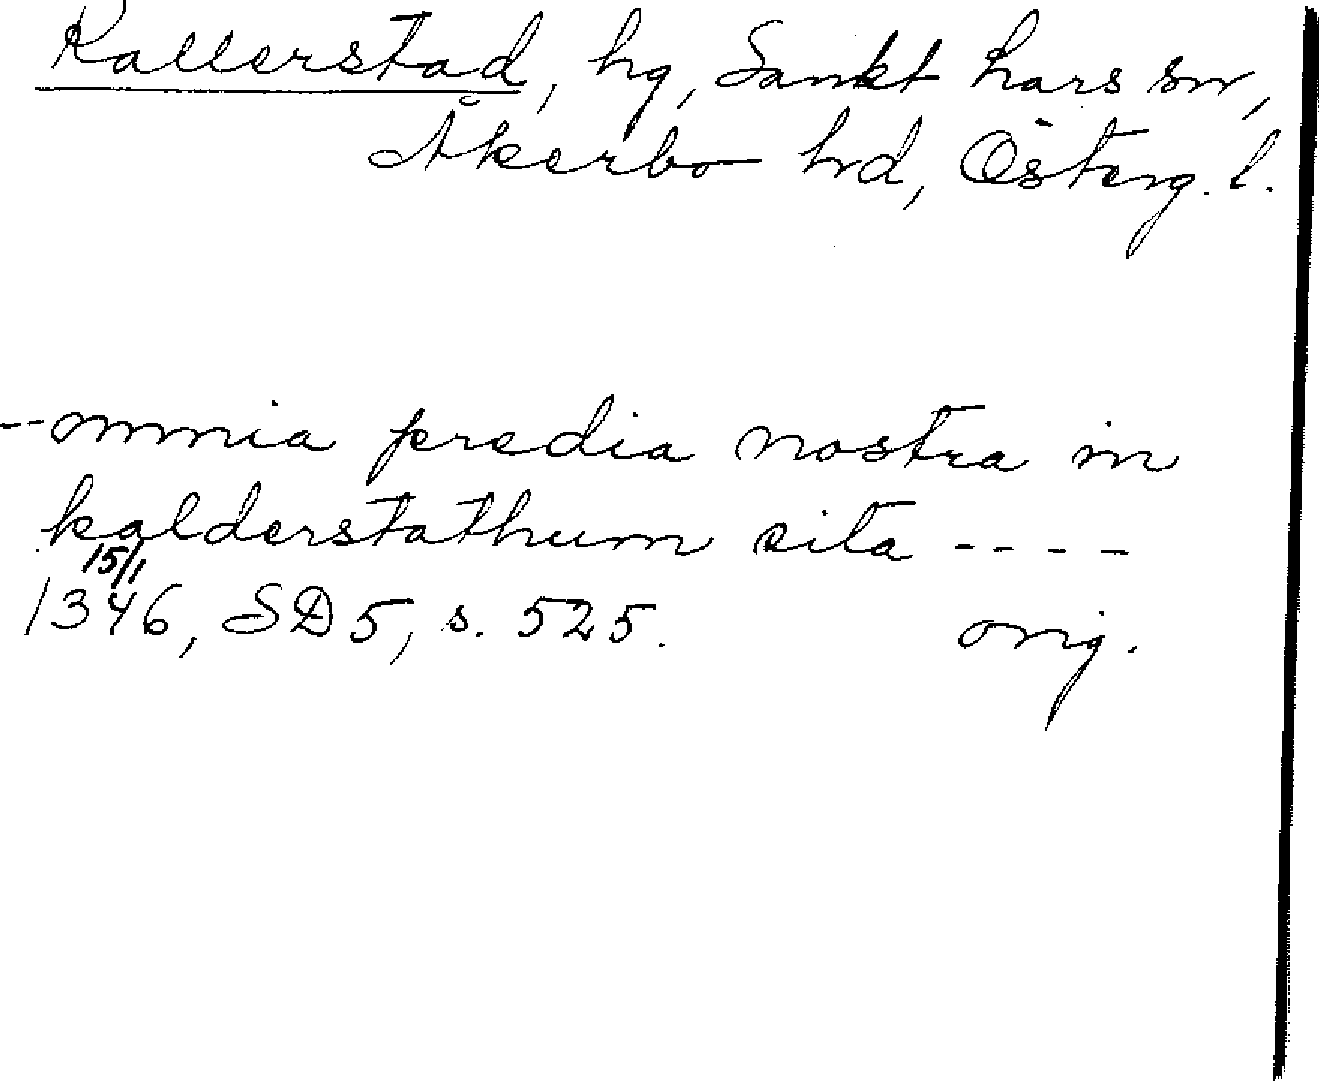 Kallerstad, hg, Sankt Lars sn,
Åkerbo hd, Österg. l.
-- omnia predia nostra in
kalderstathum sita ----
15/1
1346, SD5, s. 525. orig.